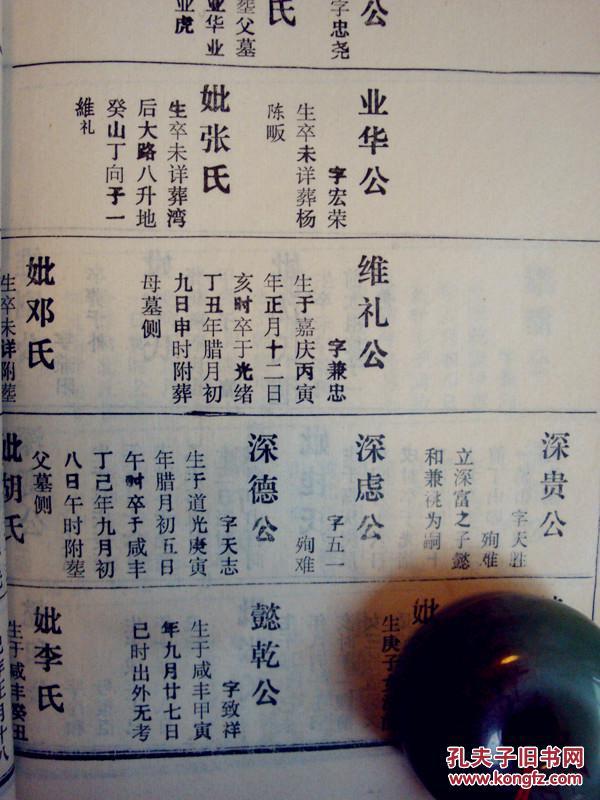 公
字忠尧
氏
葬父墓
业华业
业虎
业华公
字宏荣
生卒未详葬杨
陈畈
妣张氏
生卒未详葬湾
后大路八升地
癸山丁向子一
維礼
维礼公
字兼忠
生于嘉庆丙寅
年正月十二日
亥时卒于光绪
丁丑年腊月初
九日申时附葬
母墓侧
妣邓氏
生卒未详附葬
深贵公
字天胜
殉难
立深富之子懿
和兼祧为嗣
深虑公
字五一
殉难
深德公
字天志
生于道光庚寅
年腊月初五日
午时卒于咸丰
丁己年九月初
八日午时附葬
父墓侧
妣胡氏
妣
生庚子
懿乾公
字致祥
生于咸丰甲寅
年九月廿七日
已时出外无考
妣李氏
生于咸丰癸丑
年正月十八
孔夫子旧书网
www.kongfz.com